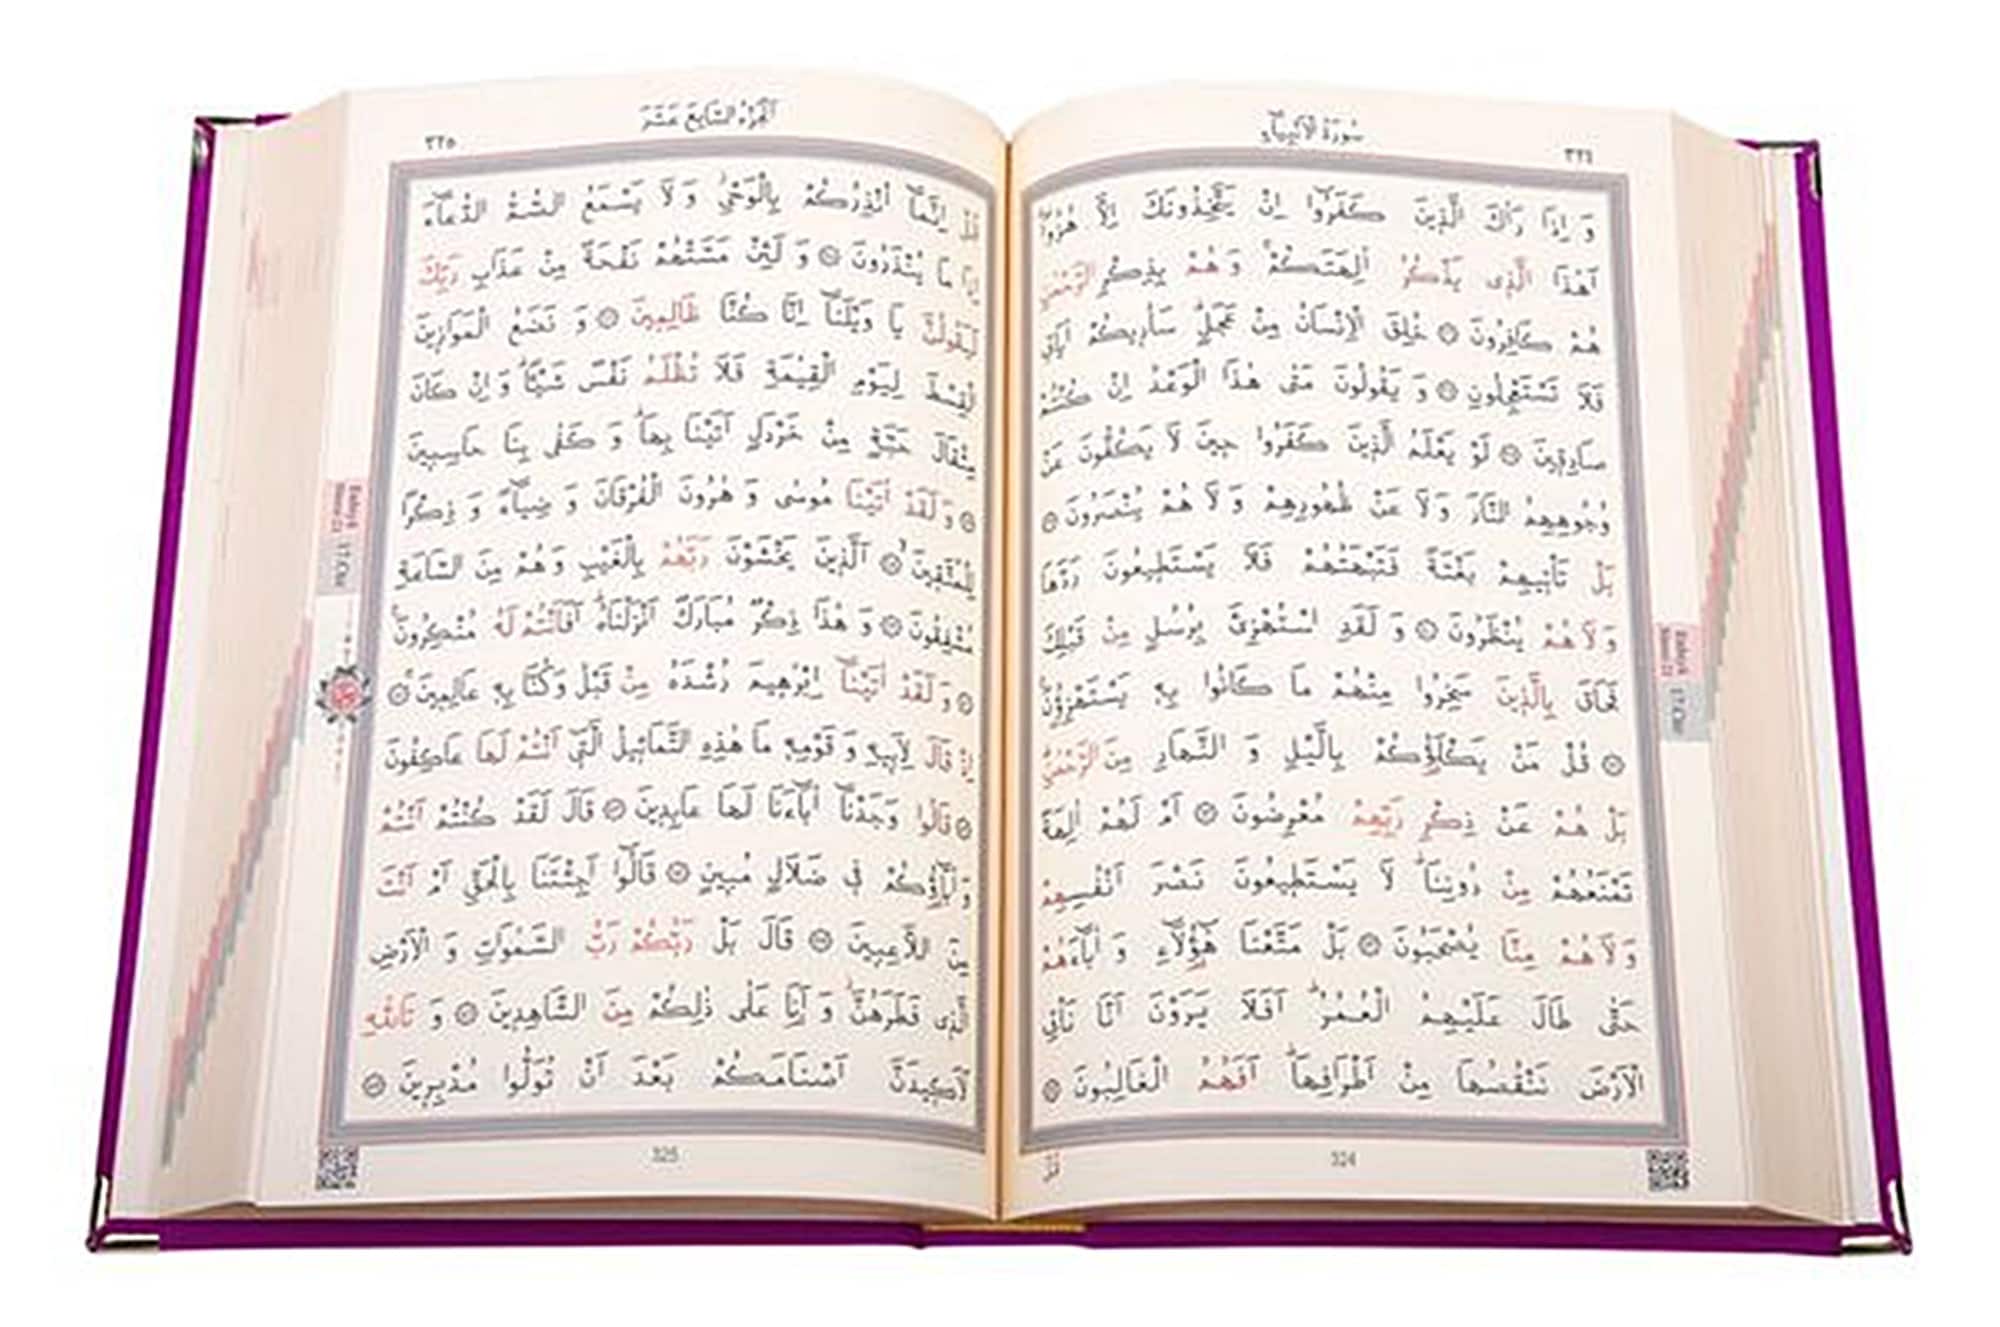 سُورَةُ الْاَنْبِيَاءِ
٣٢٤
وَ اِذَا رَاٰكَ الَّذِينَ كَفَرُٓوا اِنْ يَتَّخِذُونَكَ اِلَّا هُزُوًاۜ
اَهٰذَا الَّذِى يَذْكُرُ اٰلِهَتَكُمْۚ وَ هُمْ بِذِكْرِ الرَّحْمٰنِ
هُمْ كَافِرُونَ ۝ خُلِقَ الْاِنْسَانُ مِنْ عَجَلٍۜ سَاُرِيكُمْ اٰيَاتِى
فَلَا تَسْتَعْجِلُونِ ۝ وَ يَقُولُونَ مَتٰى هٰذَا الْوَعْدُ اِنْ كُنْتُمْ
صَادِقِينَ ۝ لَوْ يَعْلَمُ الَّذِينَ كَفَرُوا حِينَ لَا يَكُفُّونَ عَنْ
وُجُوهِهِمُ النَّارَ وَ لَا عَنْ ظُهُورِهِمْ وَ لَا هُمْ يُنْصَرُونَ ۝
بَلْ تَأْتِيهِمْ بَغْتَةً فَتَبْهَتُهُمْ فَلَا يَسْتَطِيعُونَ رَدَّهَا
وَ لَا هُمْ يُنْظَرُونَ ۝ وَ لَقَدِ اسْتُهْزِئَ بِرُسُلٍ مِنْ قَبْلِكَ
فَحَاقَ بِالَّذِينَ سَخِرُوا مِنْهُمْ مَا كَانُوا بِهِ يَسْتَهْزِؤُنَ
۝ قُلْ مَنْ يَكْلَؤُكُمْ بِالَّيْلِ وَ النَّهَارِ مِنَ الرَّحْمٰنِۜ
بَلْ هُمْ عَنْ ذِكْرِ رَبِّهِمْ مُعْرِضُونَ ۝ اَمْ لَهُمْ اٰلِهَةٌ
تَمْنَعُهُمْ مِنْ دُونِنَاۜ لَا يَسْتَطِيعُونَ نَصْرَ اَنْفُسِهِمْ
وَ لَا هُمْ مِنَّا يُصْحَبُونَ ۝ بَلْ مَتَّعْنَا هٰٓؤُلَٓاءِ وَ اٰبَٓاءَهُمْ
حَتّٰى طَالَ عَلَيْهِمُ الْعُمُرُۜ اَفَلَا يَرَوْنَ اَنَّا نَأْتِى
الْاَرْضَ نَنْقُصُهَا مِنْ اَطْرَافِهَاۜ اَفَهُمُ الْغَالِبُونَ ۝
324
قُلْ
الْجُزْءُ السَّابِعَ عَشَرَ
٣٢٥
قُلْ اِنَّمَٓا اُنْذِرُكُمْ بِالْوَحْىِۘ وَ لَا يَسْمَعُ الصُّمُّ الدُّعَٓاءَ
اِذَا مَا يُنْذَرُونَ ۝ وَ لَئِنْ مَسَّتْهُمْ نَفْحَةٌ مِنْ عَذَابِ رَبِّكَ
لَيَقُولُنَّ يَا وَيْلَنَٓا اِنَّا كُنَّا ظَالِمِينَ ۝ وَ نَضَعُ الْمَوَازِينَ
الْقِسْطَ لِيَوْمِ الْقِيٰمَةِ فَلَا تُظْلَمُ نَفْسٌ شَيْـًٔاۜ وَ اِنْ كَانَ
مِثْقَالَ حَبَّةٍ مِنْ خَرْدَلٍ اَتَيْنَا بِهَاۜ وَ كَفٰى بِنَا حَاسِبِينَ
۝ وَ لَقَدْ اٰتَيْنَا مُوسٰى وَ هٰرُونَ الْفُرْقَانَ وَ ضِيَٓاءً وَ ذِكْرًا
لِلْمُتَّقِينَۙ ۝ اَلَّذِينَ يَخْشَوْنَ رَبَّهُمْ بِالْغَيْبِ وَ هُمْ مِنَ السَّاعَةِ
مُشْفِقُونَ ۝ وَ هٰذَا ذِكْرٌ مُبَارَكٌ اَنْزَلْنَاهُۜ اَفَاَنْتُمْ لَهُ مُنْكِرُونَ
۝ وَ لَقَدْ اٰتَيْنَٓا اِبْرٰهِيمَ رُشْدَهُ مِنْ قَبْلُ وَ كُنَّا بِهِ عَالِمِينَۚ ۝
اِذْ قَالَ لِاَبِيهِ وَ قَوْمِهِ مَا هٰذِهِ التَّمَاثِيلُ الَّتِٓى اَنْتُمْ لَهَا عَاكِفُونَ
۝ قَالُوا وَجَدْنَٓا اٰبَٓاءَنَا لَهَا عَابِدِينَ ۝ قَالَ لَقَدْ كُنْتُمْ اَنْتُمْ
وَ اٰبَٓاؤُكُمْ فِى ضَلَالٍ مُبِينٍ ۝ قَالُٓوا اَجِئْتَنَا بِالْحَقِّ اَمْ اَنْتَ
مِنَ اللَّاعِبِينَ ۝ قَالَ بَلْ رَبُّكُمْ رَبُّ السَّمٰوَاتِ وَ الْاَرْضِ
الَّذِى فَطَرَهُنَّۘ وَ اَنَا عَلٰى ذٰلِكُمْ مِنَ الشَّاهِدِينَ ۝ وَ تَاللّٰهِ
لَاَكِيدَنَّ اَصْنَامَكُمْ بَعْدَ اَنْ تُوَلُّوا مُدْبِرِينَ ۝
325